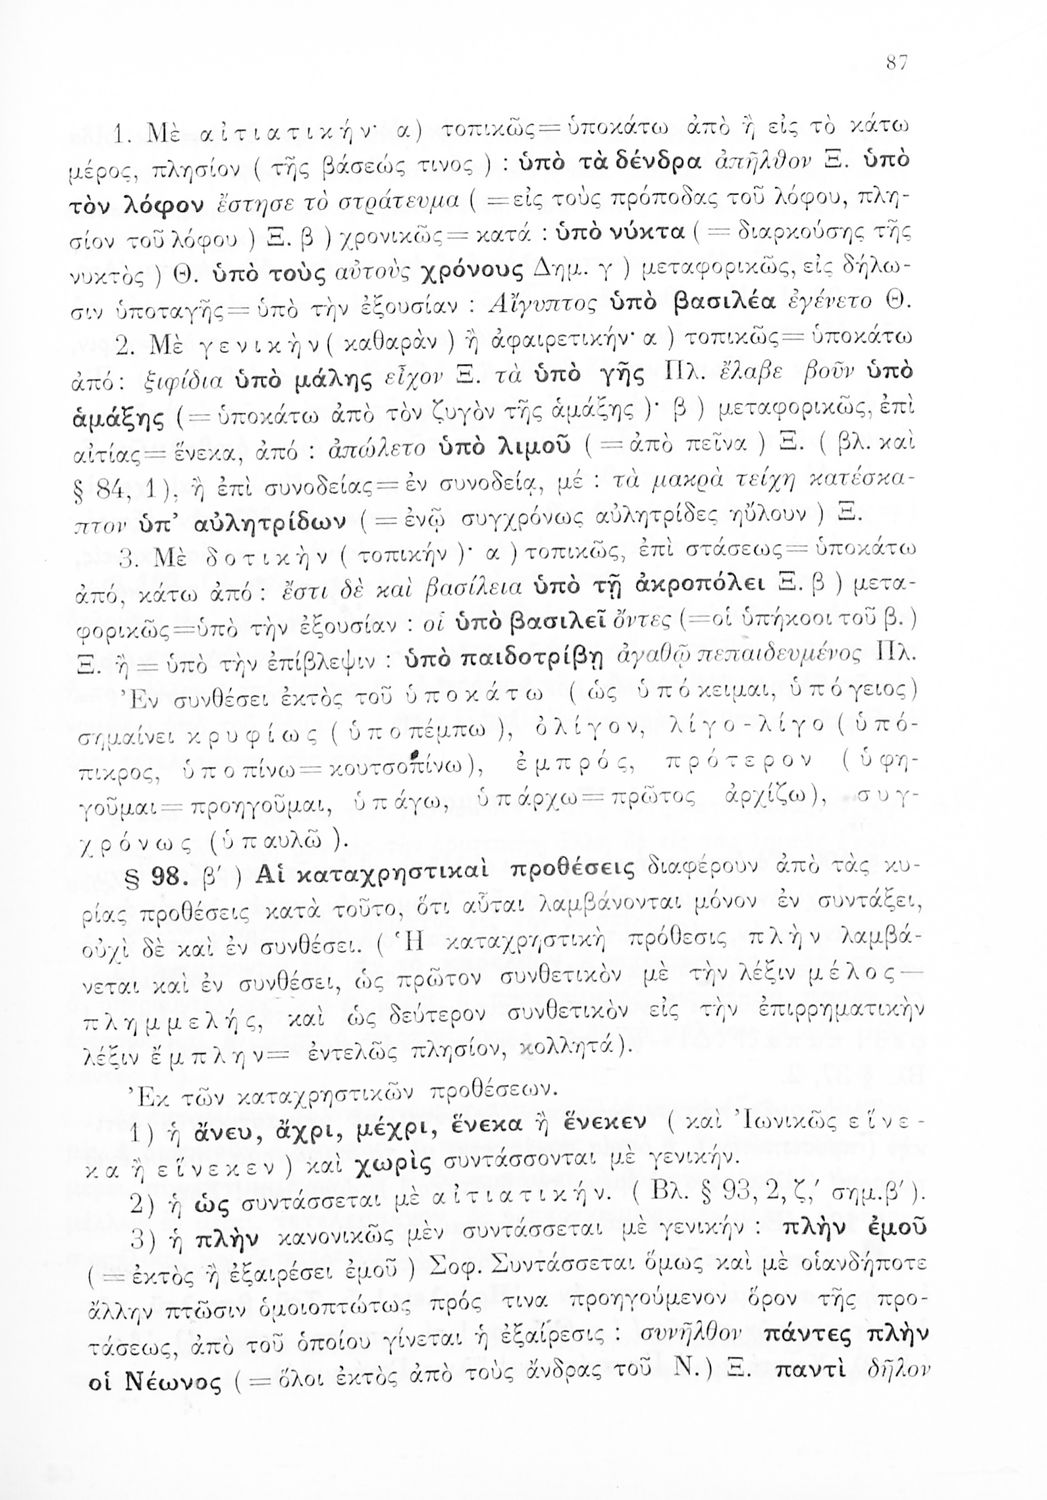 87
1. Μὲ αἰτιατικήν· α) τοπικῶς= ὑποκάτω ἀπὸ ἢ εἰς τὸ κάτω
μέρος, πλησίον ( τῆς βάσεώς τινος ) : ὑπὸ τὰ δένδρα ἀπῆλθον Ξ. ὑπὸ
τὸν λόφον ἔστησε τὸ στράτευμα ( =εἰς τοὺς πρόποδας τοῦ λόφου, πλη-
σίον τοῦ λόφου ) Ξ. β ) χρονικῶς= κατά : ὑπὸ νύκτα ( = διαρκούσης τῆς
νυκτὸς ) Θ. ὑπὸ τοὺς αὐτοὺς χρόνους Δημ. γ ) μεταφορικῶς, εἰς δήλω-
σιν ὑποταγῆς= ὑπὸ τὴν ἐξουσίαν : Αἴγυπτος ὑπὸ βασιλέα ἐγένετο Θ.
2. Μὲ γενικὴν ( καθαρὰν ) ἢ ἀφαιρετικήν· α ) τοπικῶς= ὑποκάτω
ἀπό : ξιφίδια ὑπὸ μάλης εἶχον Ξ. τὰ ὑπὸ γῆς Πλ. ἔλαβε βοῦν ὑπὸ
ἁμάξης (= ὑποκάτω ἀπὸ τὸν ζυγὸν τῆς ἁμάξης )· β ) μεταφορικῶς, ἐπὶ
αἰτίας= ἕνεκα, ἀπό : ἀπώλετο ὑπὸ λιμοῦ ( = ἀπὸ πεῖνα ) Ξ. ( βλ. καὶ
§ 84, 1 ), ἢ ἐπὶ συνοδείας= ἐν συνοδείᾳ, μέ : τὰ μακρὰ τείχη κατέσκα-
πτον ὑπ’ αὐλητρίδων ( = ἐνῷ συγχρόνως αὐλητρίδες ηὔλουν ) Ξ.
3. Μὲ δοτικὴν ( τοπικήν )· α ) τοπικῶς, ἐπὶ στάσεως= ὑποκάτω
ἀπό, κάτω ἀπό : ἔστι δὲ καὶ βασίλεια ὑπὸ τῇ ἀκροπόλει Ξ. β ) μετα-
φορικῶς=ὑπὸ τὴν ἐξουσίαν : οἱ ὑπὸ βασιλεῖ ὄντες (=οἱ ὑπήκοοι τοῦ β. )
Ξ. ἢ = ὑπὸ τὴν ἐπίβλεψιν : ὑπὸ παιδοτρίβῃ ἀγαθῷ πεπαιδευμένος Πλ.
Ἐν συνθέσει ἐκτὸς τοῦ ὑποκάτω ( ὡς ὑπόκειμαι, ὑπόγειος)
σημαίνει κρυφίως ( ὑποπέμπω ), ὀλίγον, λίγο-λίγο ( ὑπό-
πικρος, ὑποπίνω= κουτσοπίνω ), ἐμπρός, πρότερον ( ὑφη-
γοῦμαι= προηγοῦμαι, ὑπάγω, ὑπάρχω= πρῶτος ἀρχίζω), συγ-
χρόνως (ὑπαυλῶ ).
§ 98. β΄ ) Αἱ καταχρηστικαὶ προθέσεις διαφέρουν ἀπὸ τὰς κυ-
ρίας προθέσεις κατὰ τοῦτο, ὅτι αὗται λαμβάνονται μόνον ἐν συντάξει,
οὐχὶ δὲ καὶ ἐν συνθέσει. ( Ἡ καταχρηστικὴ πρόθεσις πλὴν λαμβά-
νεται καὶ ἐν συνθέσει, ὡς πρῶτον συνθετικὸν μὲ τὴν λέξιν μέλος —
πλημμελής, καὶ ὡς δεύτερον συνθετικὸν εἰς τὴν ἐπιρρηματικὴν
λέξιν ἔμπλην= ἐντελῶς πλησίον, κολλητά).
Ἐκ τῶν καταχρηστικῶν προθέσεων.
1) ἡ ἄνευ, ἄχρι, μέχρι, ἕνεκα ἢ ἕνεκεν ( καὶ Ἰωνικῶς εἵνε-
κα ἢ εἵνεκεν ) καὶ χωρὶς συντάσσονται μὲ γενικήν.
2) ἡ ὡς συντάσσεται μὲ αἰτιατικήν. ( Βλ. § 93, 2, ζ,΄ σημ.β΄ ).
3) ἡ πλὴν κανονικῶς μὲν συντάσσεται μὲ γενικήν : πλὴν ἐμοῦ
( = ἐκτὸς ἢ ἐξαιρέσει ἐμοῦ ) Σοφ. Συντάσσεται ὅμως καὶ μὲ οἱανδήποτε
ἄλλην πτῶσιν ὁμοιοπτώτως πρός τινα προηγούμενον ὅρον τῆς προ-
τάσεως, ἀπὸ τοῦ ὁποίου γίνεται ἡ ἐξαίρεσις : συνῆλθον πάντες πλὴν
οἱ Νέωνος ( = ὅλοι ἐκτὸς ἀπὸ τοὺς ἄνδρας τοῦ Ν.) Ξ. παντὶ δῆλον